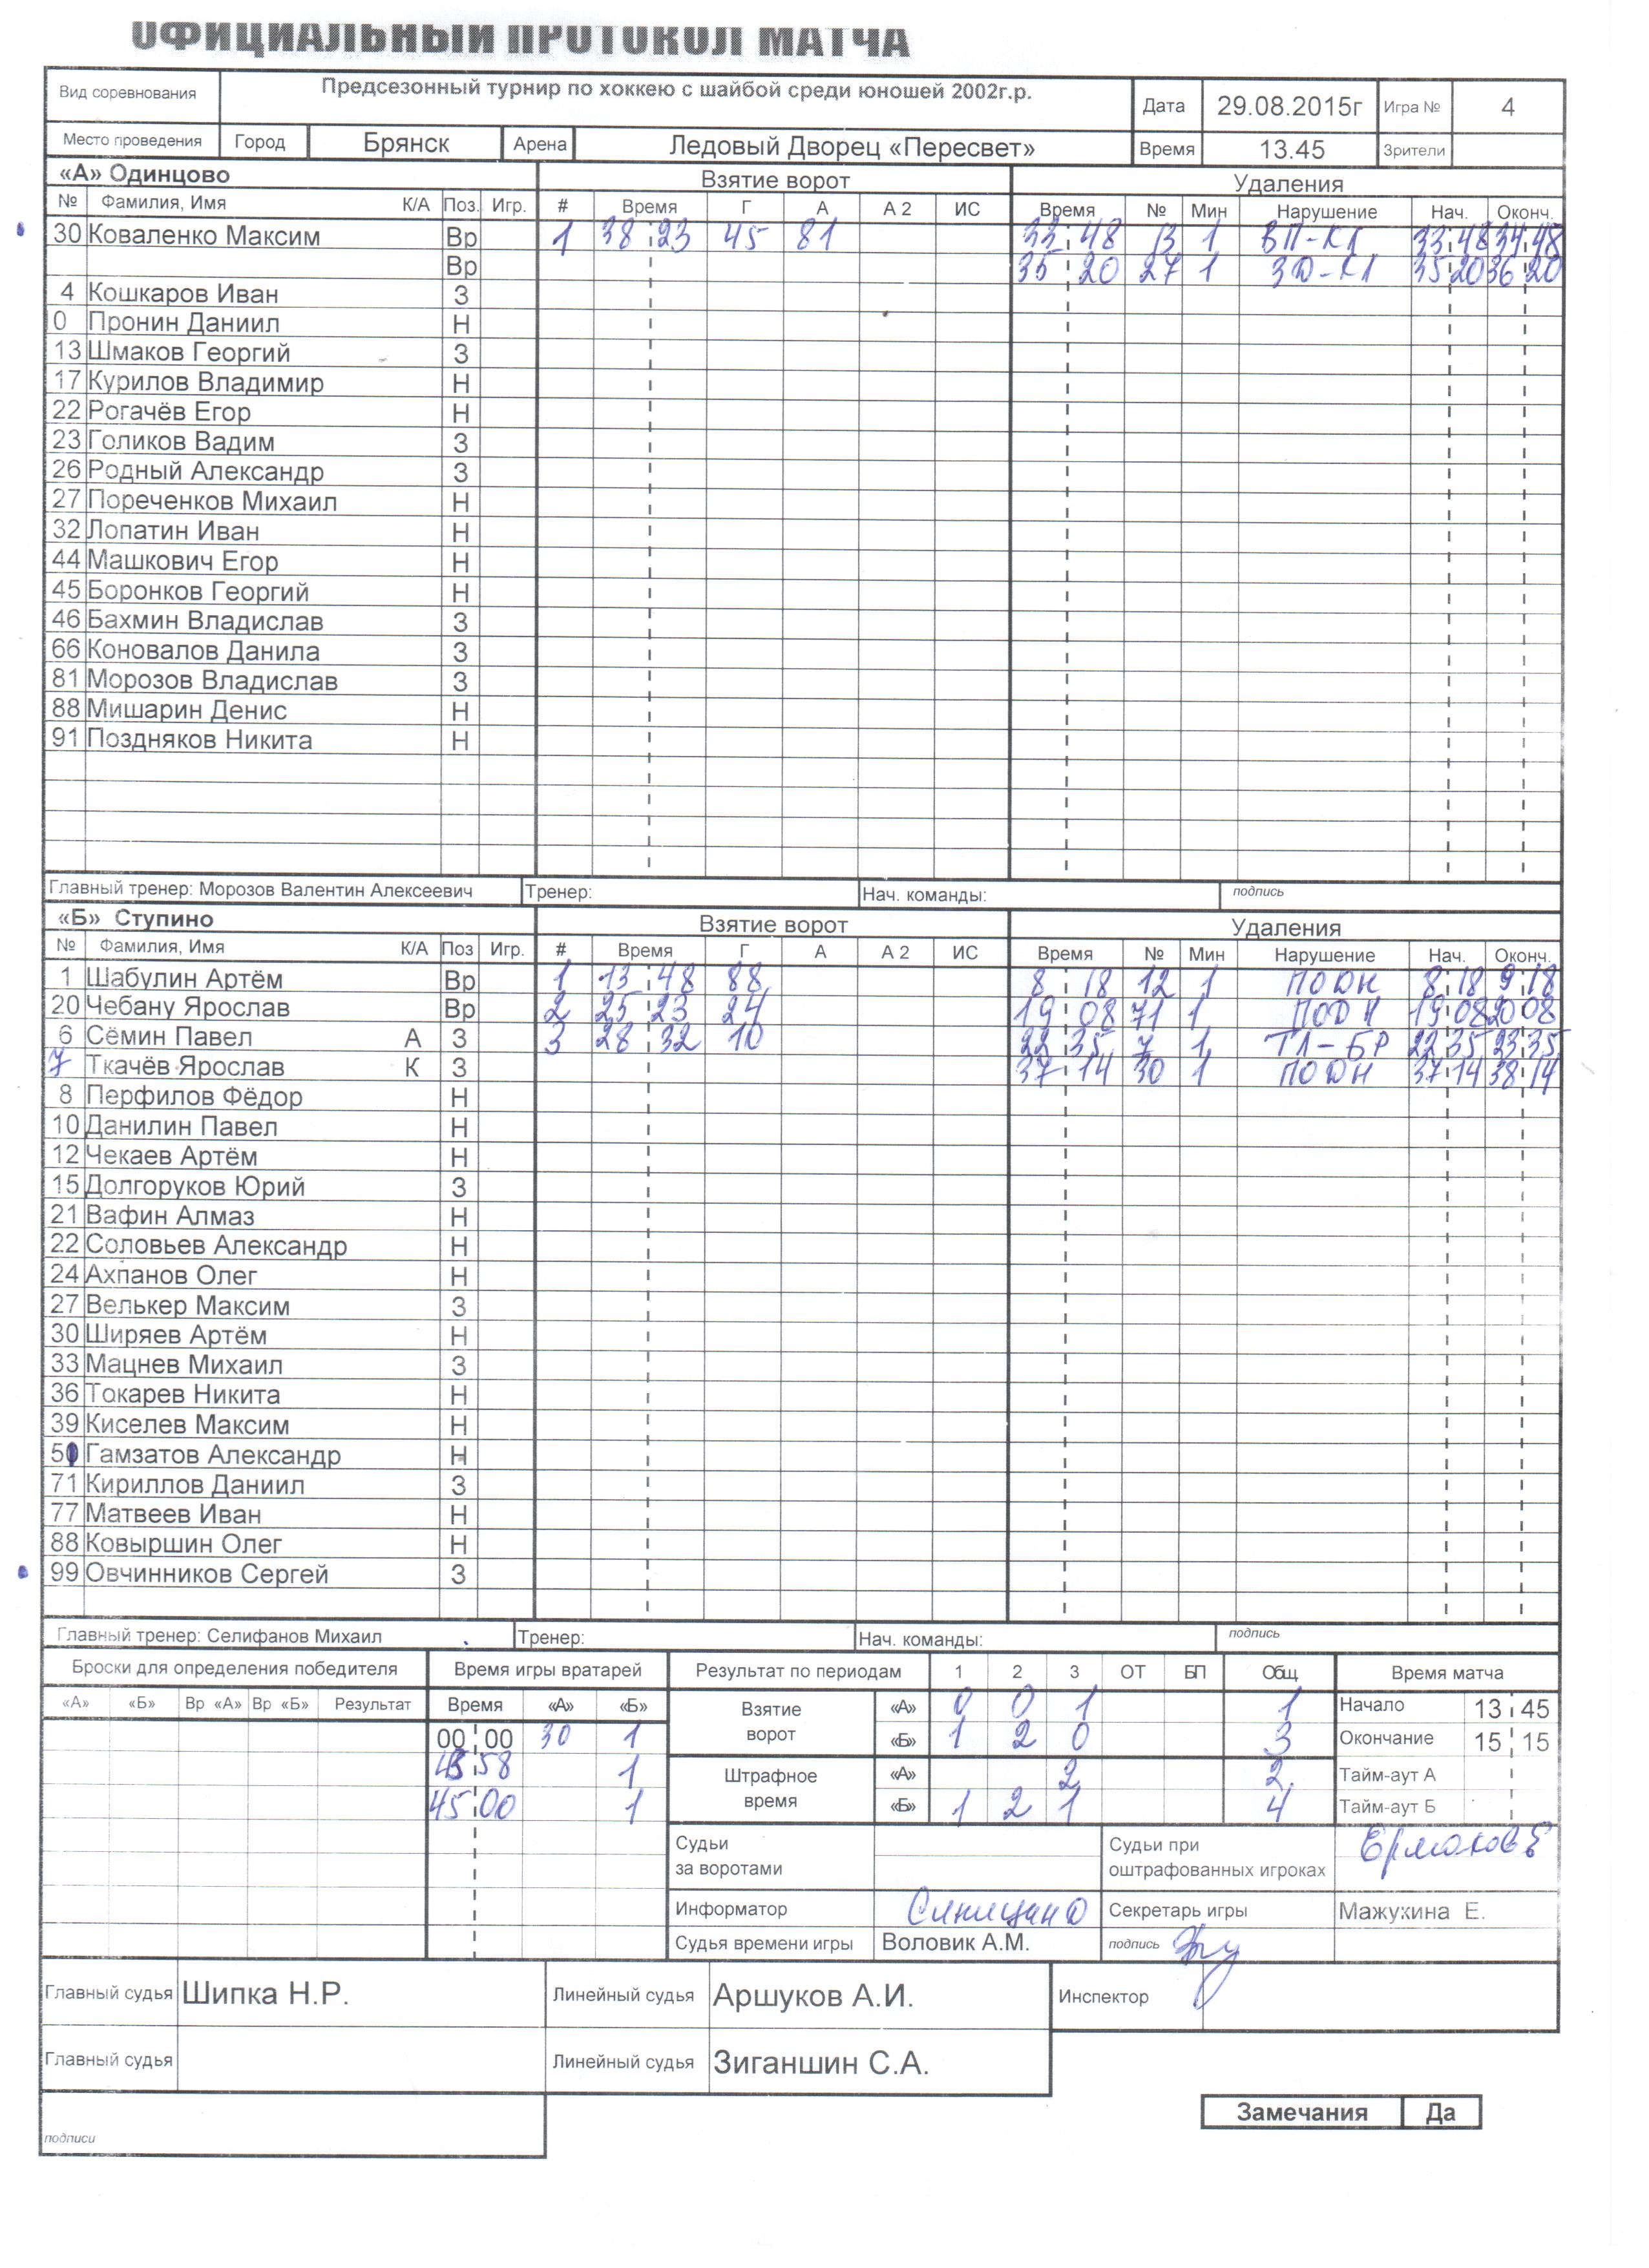 ОФИЦИАЛЬНЫЙ ПРОТОКОЛ МАТЧА
Вид соревнования Предсезонный турнир по хоккею с шайбой среди юношей 2002г.р. Дата 29.08.2015г Игра № 4
Место проведения Город Брянск Арена Ледовый Дворец «Пересвет» Время 13.45 Зрители
«А» Одинцово Взятие ворот Удаления
№ Фамилия, Имя К/А Поз. Игр. # Время Г А А 2 ИС Время № Мин Нарушение Нач. Оконч.
30 Коваленко Максим Вр 1 38 23 45 81 33 48 13 1 ВП-КЛ 33 48 34 48
Вр 35 20 27 1 ЗД-КЛ 35 20 36 20
4 Кошкаров Иван З
0 Пронин Даниил Н
13 Шмаков Георгий З
17 Курилов Владимир Н
22 Рогачёв Егор Н
23 Голиков Вадим З
26 Родный Александр З
27 Пореченков Михаил Н
32 Лопатин Иван Н
44 Машкович Егор Н
45 Боронков Георгий Н
46 Бахмин Владислав З
66 Коновалов Данила З
81 Морозов Владислав З
88 Мишарин Денис Н
91 Поздняков Никита Н
Главный тренер: Морозов Валентин Алексеевич Тренер: Нач. команды: подпись
«Б» Ступино Взятие ворот Удаления
№ Фамилия, Имя К/А Поз Игр. # Время Г А А 2 ИС Время № Мин Нарушение Нач. Оконч.
1 Шабулин Артём Вр 1 13 48 88 8 18 12 1 ПОДН 8 18 9 18
20 Чебану Ярослав Вр 2 25 23 24 19 08 71 1 ПОДН 19 08 20 08
6 Сёмин Павел А З 3 28 32 10 22 35 7 1 ТЛ-БР 22 35 23 35
7 Ткачёв Ярослав К З 37 14 30 1 ПОДН 37 14 38 14
8 Перфилов Фёдор Н
10 Данилин Павел Н
12 Чекаев Артём Н
15 Долгоруков Юрий З
21 Вафин Алмаз Н
22 Соловьев Александр Н
24 Ахпанов Олег Н
27 Велькер Максим З
30 Ширяев Артём Н
33 Мацнев Михаил З
36 Токарев Никита Н
39 Киселев Максим Н
Гамзатов Александр Н
71 Кириллов Даниил З
77 Матвеев Иван Н
88 Ковыршин Олег Н
99 Овчинников Сергей З
Главный тренер: Селифанов Михаил Тренер: Нач. команды: подпись
Броски для определения победителя Время игры вратарей Результат по периодам 1 2 3 ОТ БП Общ Время матча
«А» «Б» Вр «А» Вр «Б» Результат Время «А» «Б» Взятие ворот «А» 0 0 1 1 Начало 13 45
00 00 30 1 «Б» 1 2 0 3 Окончание 15 15
58 1 Штрафное время «А» 2 2 Тайм-аут А
45 00 1 «Б» 1 2 1 4 Тайм-аут Б
Судьи за воротами Судьи при оштрафованных игроках Ермаков Е
Информатор Синицина Секретарь игры Мажукина Е.
Судья времени игры Воловик А.М. подпись
Главный судья Шипка Н.Р. Линейный судья Аршуков А.И. Инспектор
Главный судья Линейный судья Зиганшин С.А.
Замечания Да
подписи